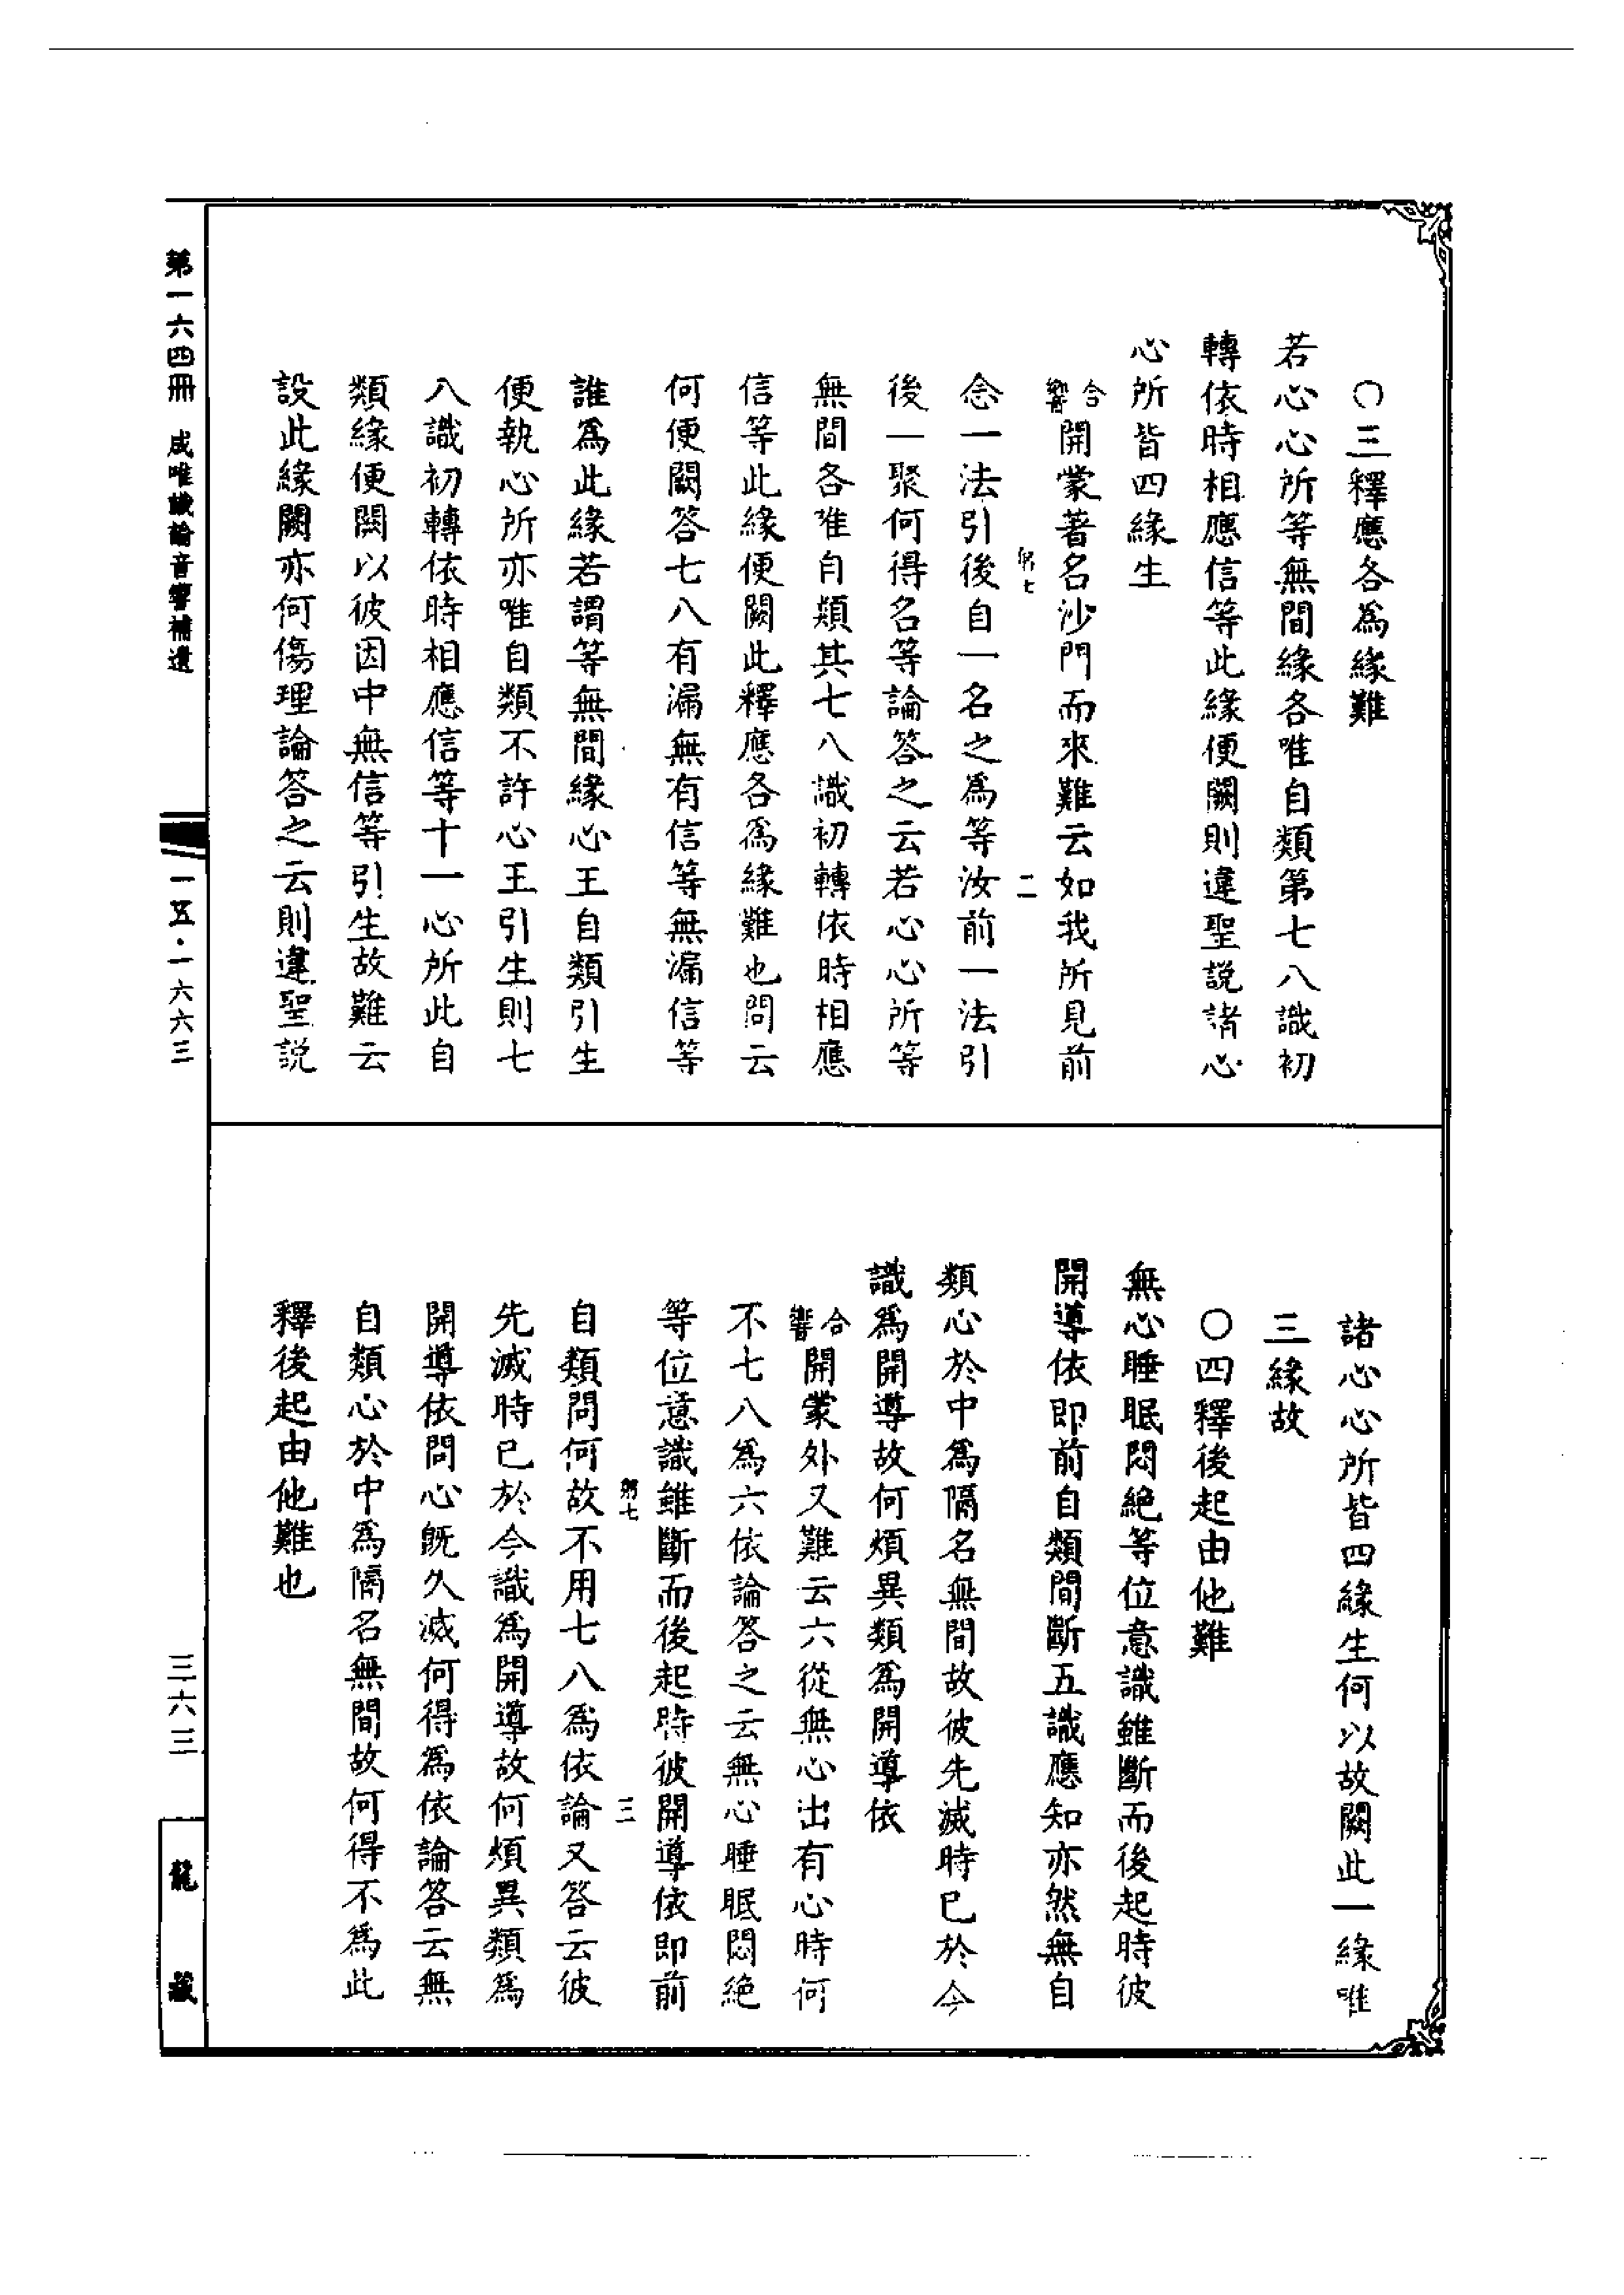 〇三釋應各為緣難
若心心所等無間緣各唯自類第七八識初
轉依時相應信等此緣便闕則違聖說諸心
心所皆四緣生
合響開蒙著名沙門而來難云如我所見前
二
念一法引後自一名之為等汝前一法引
後一聚何得名等論答之云若心心所等
無間各唯自類其七八識初轉依時相應
信等此緣便闕此釋應各為緣難也問云
何便闕答七八有漏無有信等無漏信等
誰為此緣若謂等無間緣心王自類引生
便執心所亦唯自類不許心王引生則七
八識初轉依時相應信等十一心所此自
類緣便闕以彼因中無信等引生故難云
設此緣闕亦何傷理論答之云則違聖說
諸心心所皆四緣生何以故闕此一緣唯
三緣故
〇四釋後起由他難
無心睡眠悶絕等位意識雖斷而後起時彼
開導依即前自類間斷五識應知亦然無自
類心於中為隔名無間故彼先滅時已於今
識為開導故何煩異類為開導依
合響開蒙外又難云六從無心出有心時何
不七八為六依論答之云無心睡眠悶絕
等位意識雖斷而後起時彼開導依即前
三
自類問何故不用七八為依論又答云彼
先滅時已於今識為開導故何煩異類為
開導依問心既久滅何得為依論答云無
自類心於中為隔名無間故何得不為此
釋後起由他難也
第一六四冊 成唯識論音響補遺
一五·一六六三
三六三
龍藏